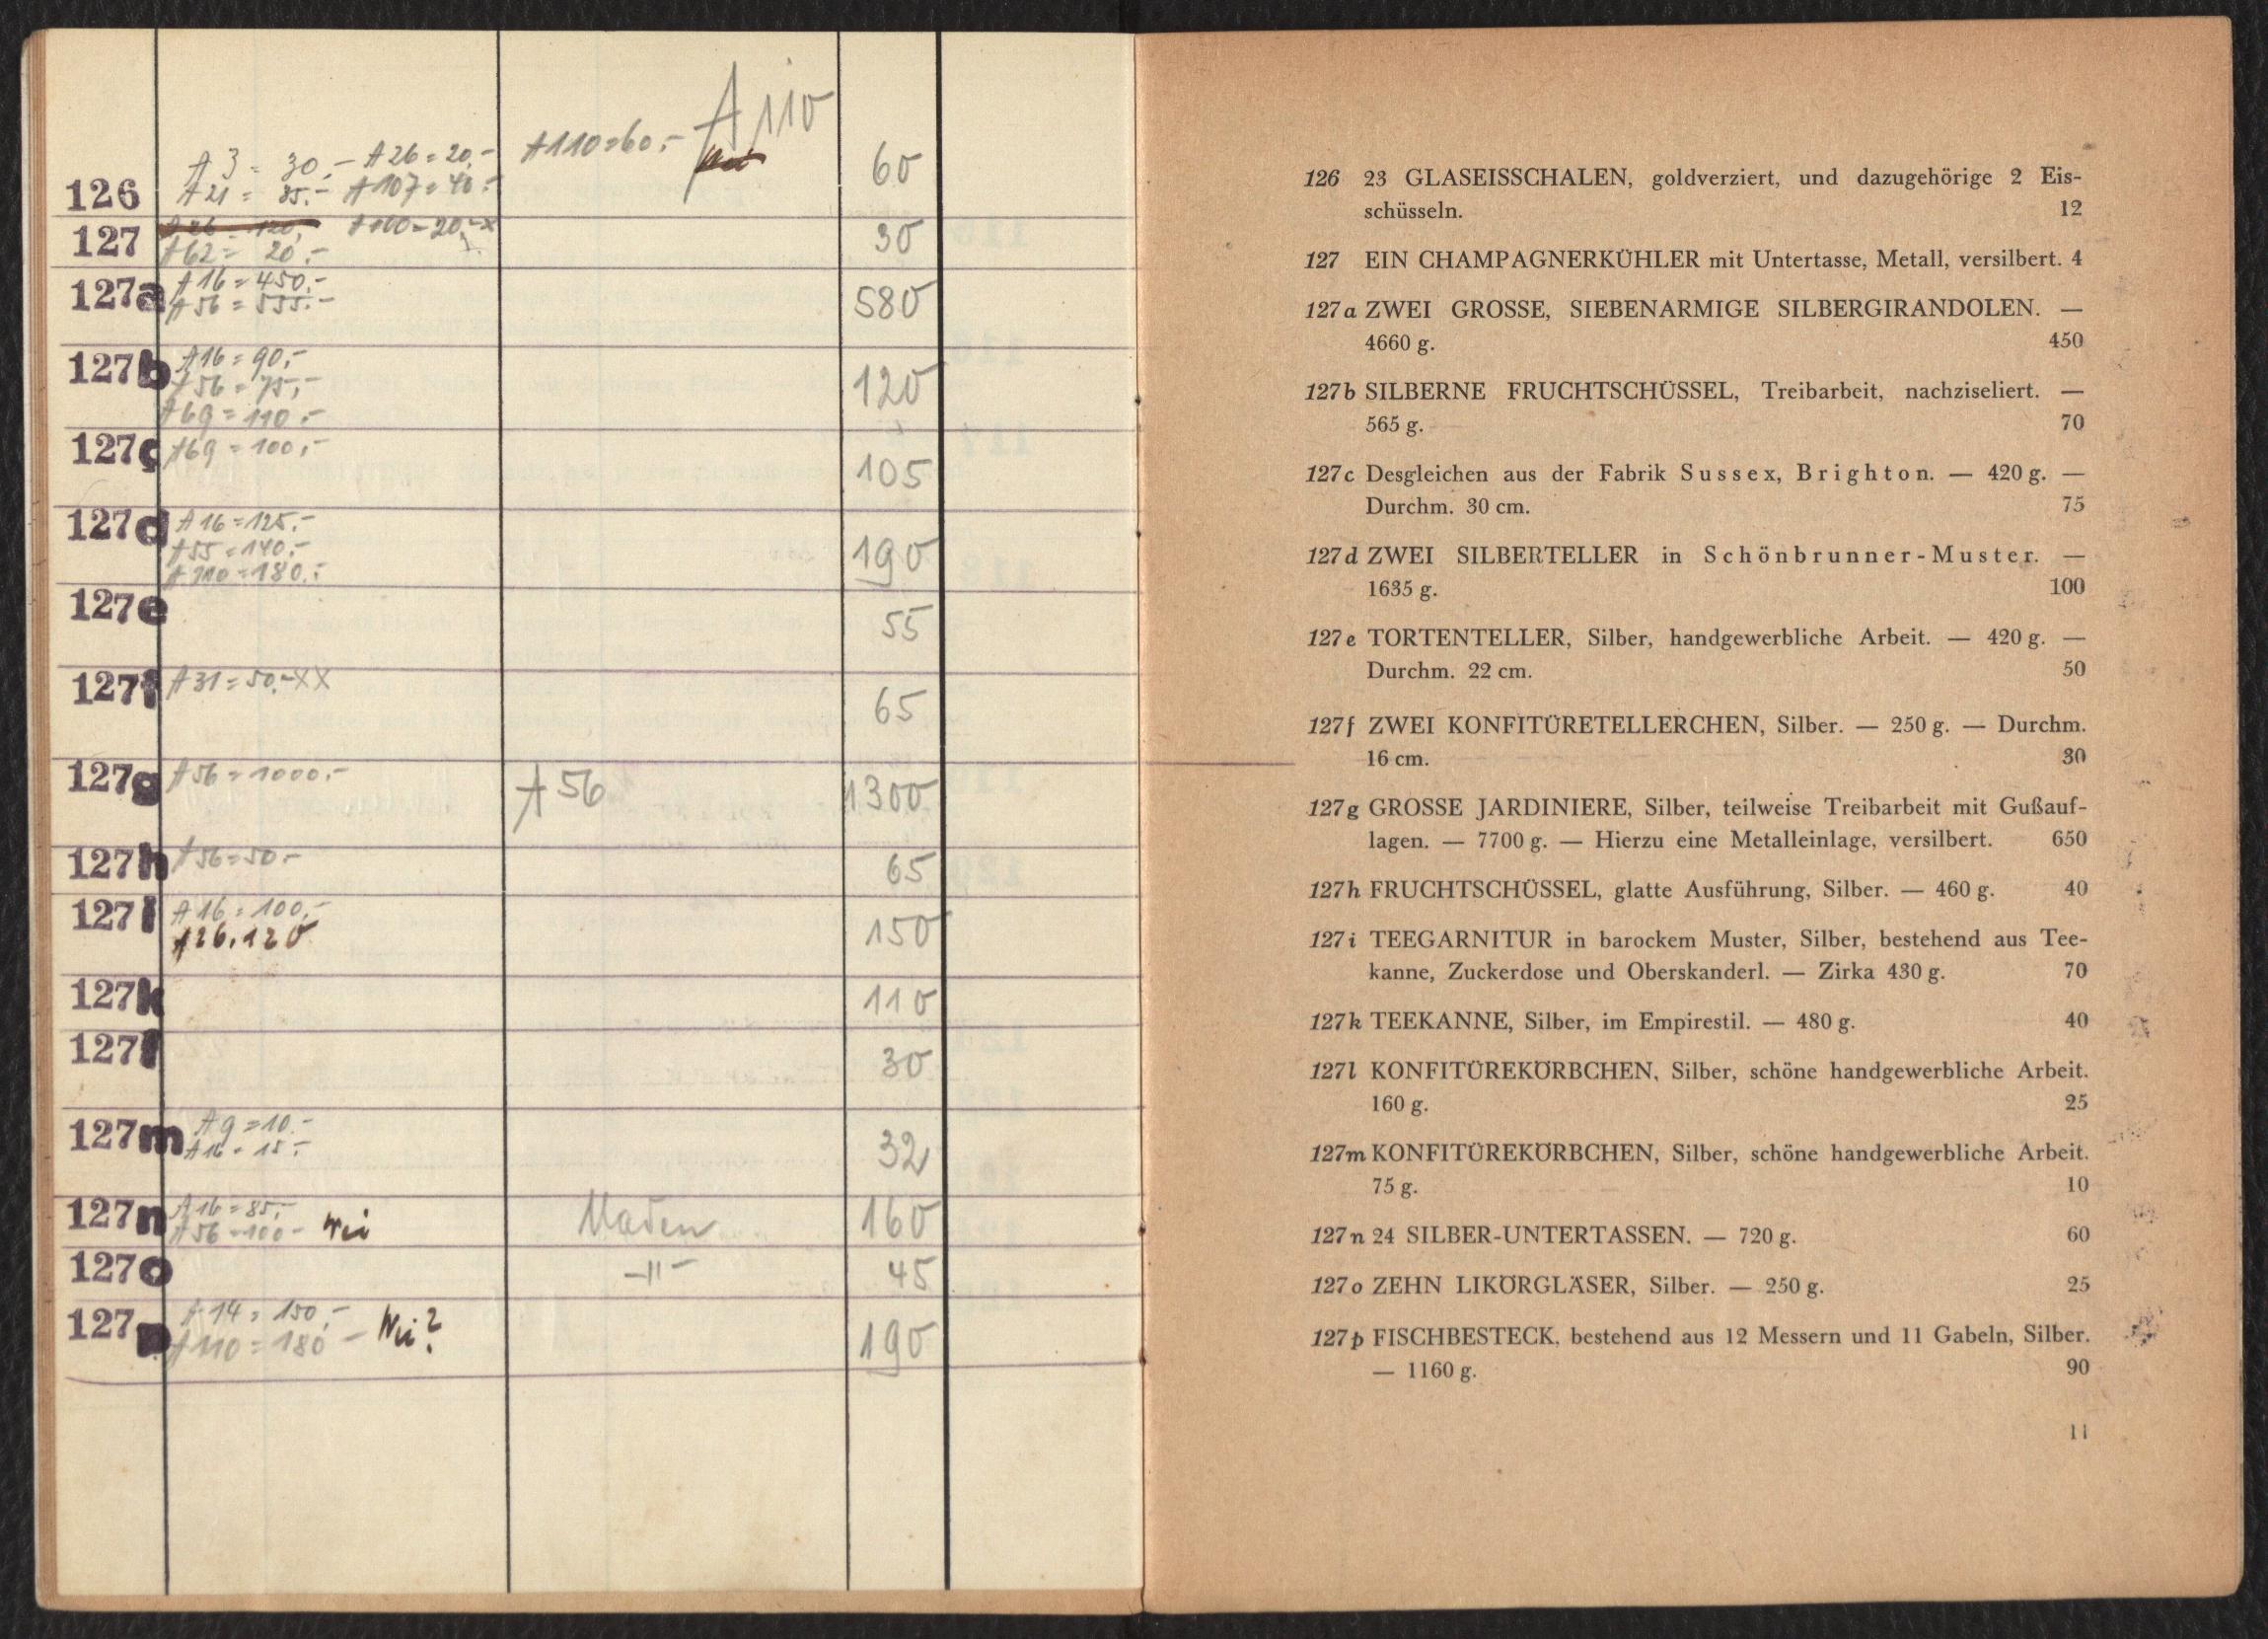 A 3 = 30.- A 26 = 20.- A 110 = 60.- A 110
126 A 21 = 35.- A 107 = 40.- 60
127 A 26 = 120, A 100 = 20.- x 30
A 62 = 20.-
127a A 16 = 450.- 580
A 56 = 555.-
127b A 16 = 90.- 120
A 56 = 75,-
A 69 = 110.-
127c A 69 = 100,- 105
127d A 16 = 125.- 190
A 55 = 140.-
A 110 = 180.-
127e 55
127f A 31 = 50.- XX 65
127g A 56 = 1000.- A 56 1300
127h A 56 = 50.- 65
127i A 16 = 100.- 150
A 26. 120
127k 110
127l 30
127m A 9 = 10.- 32
A 16 = 15.-
127n A 16 = 85,- 160
A 56 = 100 - Wei
127o -||- 45
127p A 14 = 150,- 190
A 110 = 180 - Wei?
126 23 GLASEISSCHALEN, goldverziert, und dazugehörige 2 Eis-
schüsseln. 12
127 EIN CHAMPAGNERKÜHLER mit Untertasse, Metall, versilbert. 4
127a ZWEI GROSSE, SIEBENARMIGE SILBERGIRANDOLEN. —
4660 g. 450
127b SILBERNE FRUCHTSCHÜSSEL, Treibarbeit, nachziseliert. —
565 g. 70
127c Desgleichen aus der Fabrik Sussex, Brighton. — 420 g. —
Durchm. 30 cm. 75
127d ZWEI SILBERTELLER in Schönbrunner-Muster. —
1635 g. 100
127e TORTENTELLER, Silber, handgewerbliche Arbeit. — 420 g. —
Durchm. 22 cm. 50
127f ZWEI KONFITÜRETELLERCHEN, Silber. — 250 g. — Durchm.
16 cm. 30
127g GROSSE JARDINIERE, Silber, teilweise Treibarbeit mit Gußauf-
lagen. — 7700 g. — Hierzu eine Metalleinlage, versilbert. 650
127h FRUCHTSCHÜSSEL, glatte Ausführung, Silber. — 460 g. 40
127i TEEGARNITUR in barockem Muster, Silber, bestehend aus Tee-
kanne, Zuckerdose und Oberskanderl. — Zirka 430 g. 70
127k TEEKANNE, Silber, im Empirestil. — 480 g. 40
127l KONFITÜREKÖRBCHEN, Silber, schöne handgewerbliche Arbeit.
160 g. 25
127m KONFITÜREKÖRBCHEN, Silber, schöne handgewerbliche Arbeit.
75 g. 10
127n 24 SILBER-UNTERTASSEN. — 720 g. 60
127o ZEHN LIKÖRGLÄSER, Silber. — 250 g. 25
127p FISCHBESTECK, bestehend aus 12 Messern und 11 Gabeln, Silber.
— 1160 g. 90
11